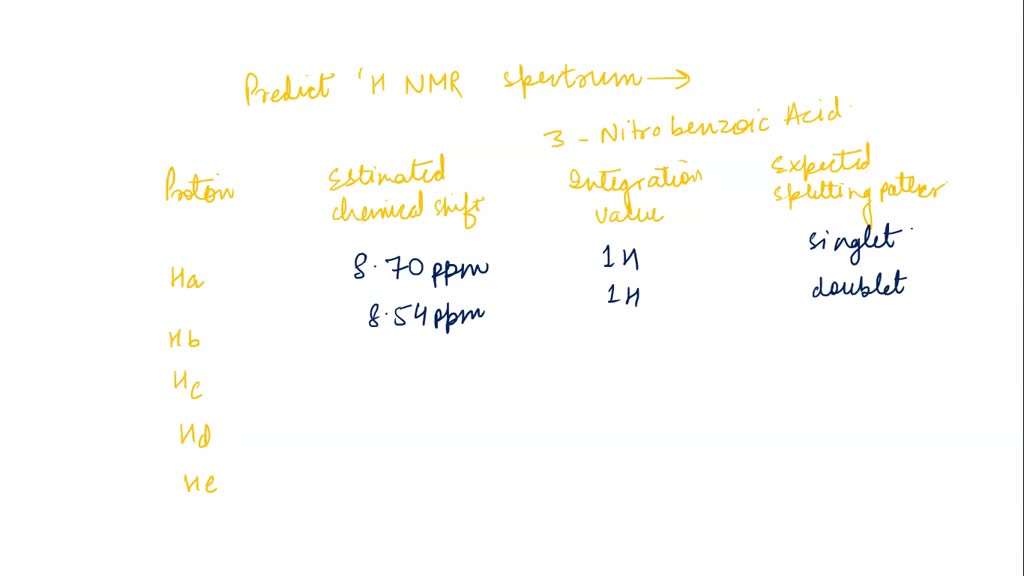 Predict 'H NMR spectrum →
3 - Nitrobenzoic Acid
Proton Estimated chemical shift Integration value Expected splitting patter
Ha 8.70 ppm 1H singlet
Hb 8.54 ppm 1H doublet
Hc
Hd
He